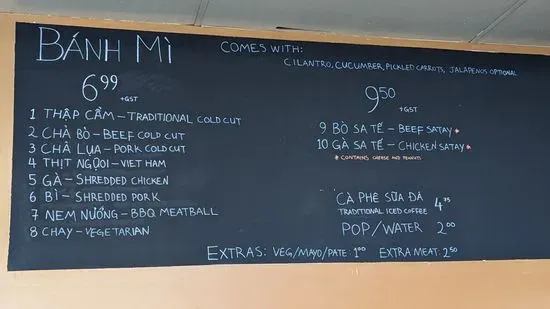 BÁNH MÌ
COMES WITH:
CILANTRO, CUCUMBER, PICKLED CARROTS, JALAPENOS OPTIONAL
6.99
+GST
1 THẬP CẨM – TRADITIONAL COLD CUT
2 CHẢ BÒ – BEEF COLD CUT
3 CHẢ LỤA – PORK COLD CUT
4 THỊT NGUỘI – VIET HAM
5 GÀ – SHREDDED CHICKEN
6 BÌ – SHREDDED PORK
7 NEM NƯỚNG – BBQ MEATBALL
8 CHAY – VEGETARIAN
9.50
+GST
9 BÒ SA TẾ – BEEF SATAY *
10 GÀ SA TẾ – CHICKEN SATAY *
* CONTAINS CHEESE AND PEANUTS
CÀ PHÊ SỮA ĐÁ 4.75
TRADITIONAL ICED COFFEE
POP/WATER 2.00
EXTRAS: VEG/MAYO/PATE: 1.00 EXTRA MEAT: 2.50